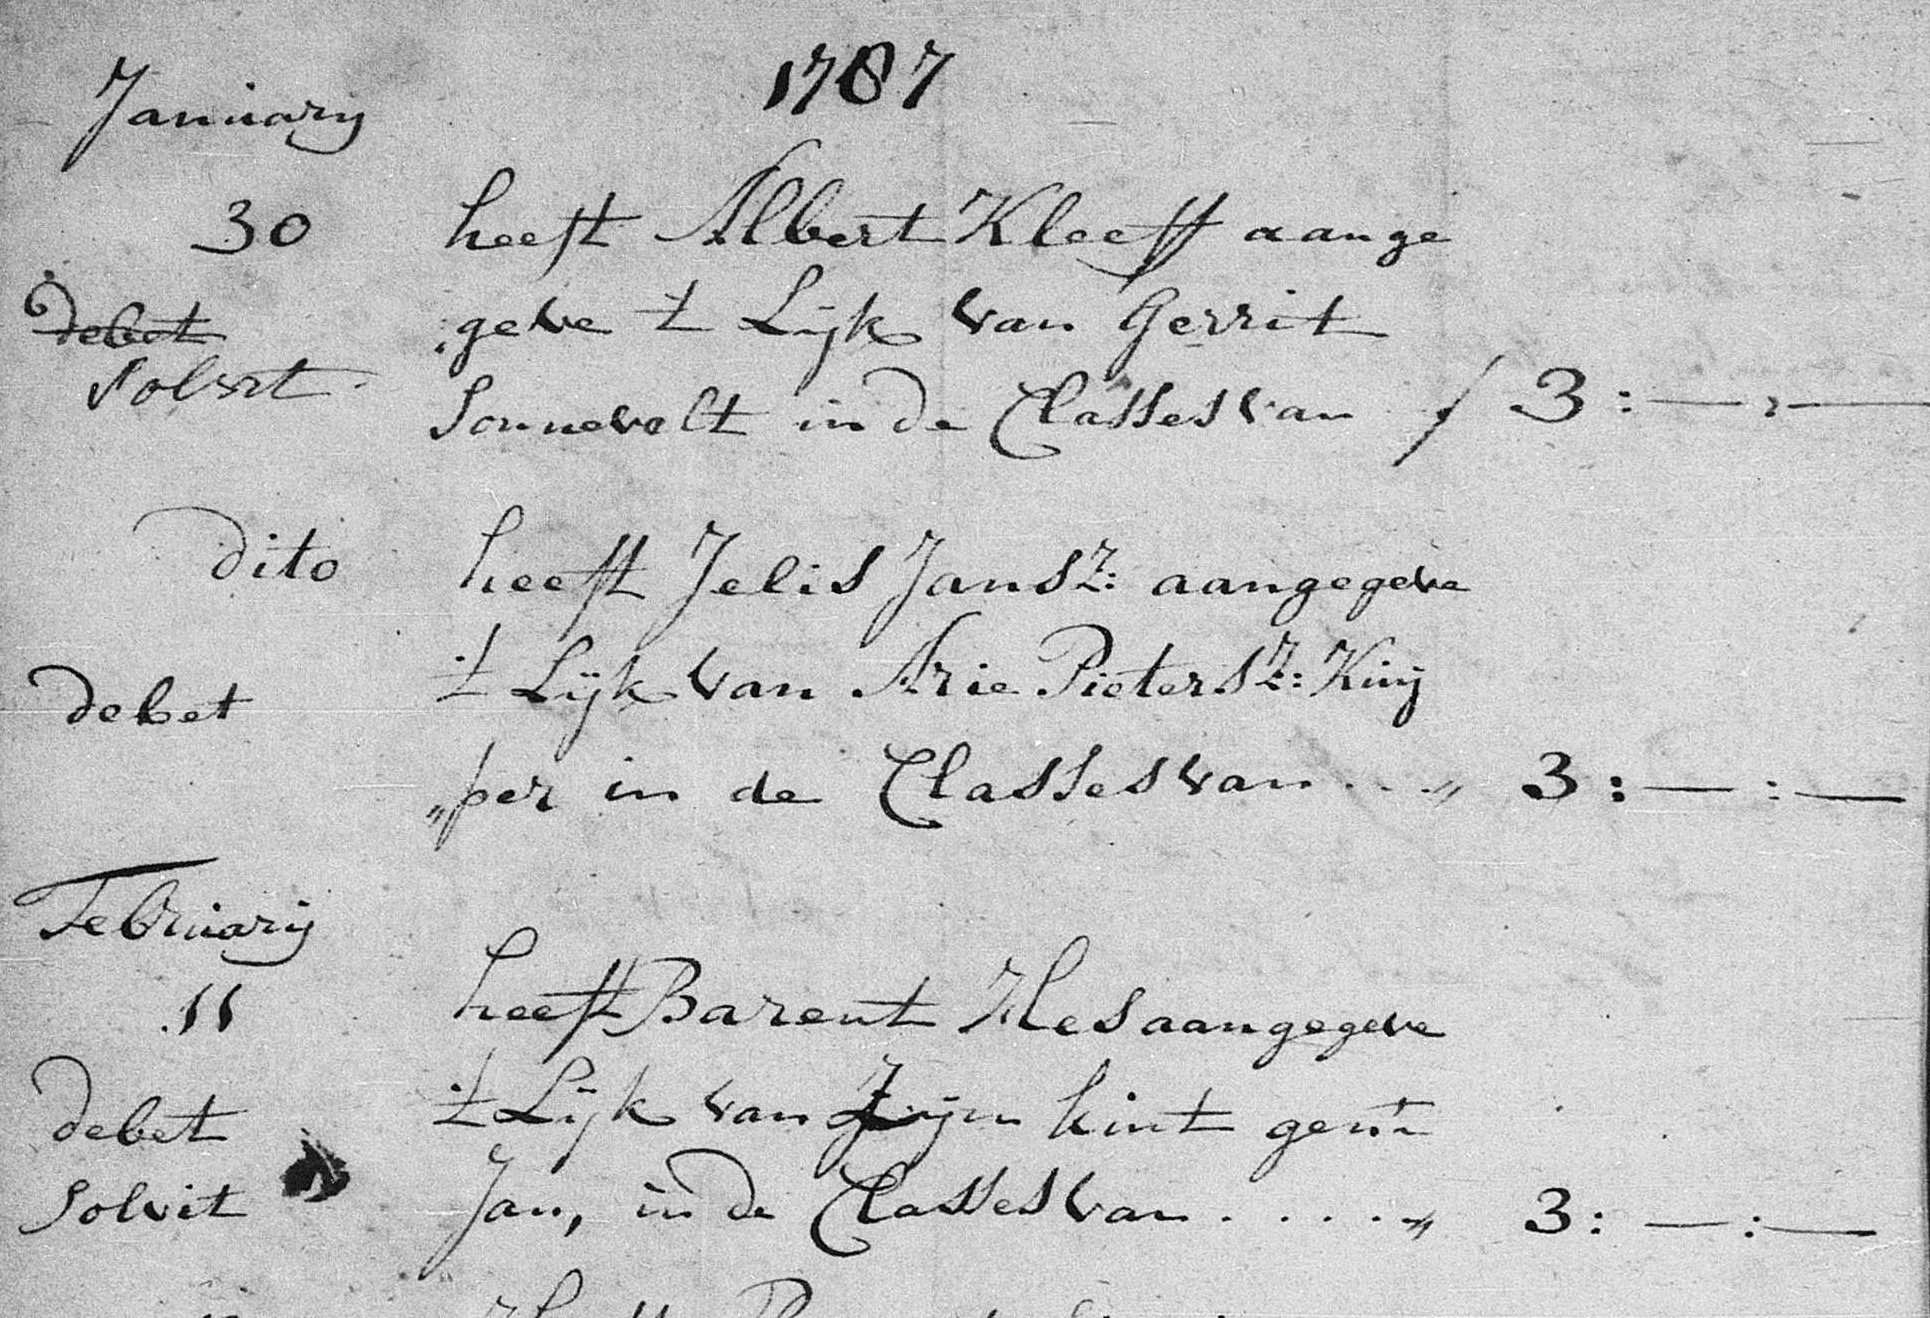 1787
January
30 heeft Albert Kleeff aange
debet geve t Lijk van Gerrit
Solvit Sonnevelt in de Classes van ƒ 3:—:—
dito heeft Jelis Jansz: aangegeve
debet 't Lijk van Arie Pietersz: Kuij
„per in de Classes van . . . „ 3:—:—
February
11 heeft Barent Hes aangegeve
debet 't Lijk van Zijn kint gent
Solvit Jan, in de Classes van . . . . „ 3:—:—